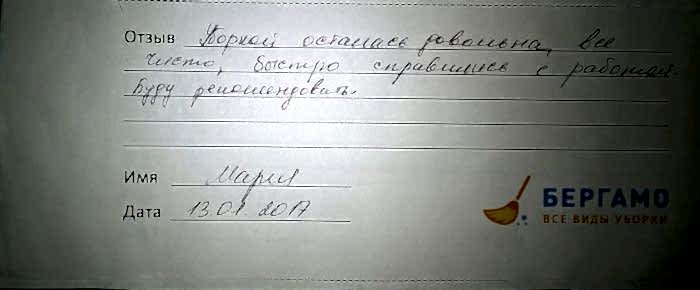 Отзыв Уборкой осталась довольна, все
чисто, быстро справились с работой.
Буду рекомендовать.
Имя Мария
Дата 13.01.2017
БЕРГАМО
ВСЕ ВИДЫ УБОРКИ